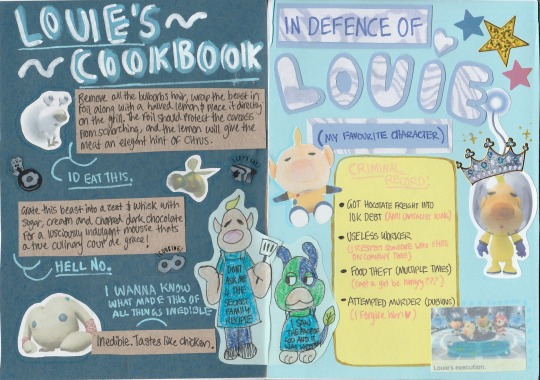 LOUIE'S
COOKBOOK
Remove all the bulborbs hair, wrap the beast in
foil along with a halved lemon & place it directly
on the grill. The foil should protect the carcass
from scorching, and the lemon will give the
meat an elegant hint of citrus.
ID EAT THIS.
Grate this beast into a zest & whisk with
sugar, cream and chopped dark chocolate
for a lusciously indulgent mousse thats
a true culinary coup de grace!
HELL NO.
I WANNA KNOW
WHAT MADE THIS OF
ALL THINGS INEDIBLE
Inedible. Tastes like chicken.
DONT
ASK ME
4 THE
SECRET
FAMILY
RECIPE
I SAW
THE FACE OF
GOD AND IT
WAS
IN DEFENCE OF
LOUIE
(MY FAVOURITE CHARACTER)
CRIMINAL
RECORD:
• GOT HOCOTATE FREIGHT INTO
10K DEBT (ANTI CAPITALIST KING)
• USELESS WORKER
(I RESPECT SOMEONE WHO
ON COMPANY TIME)
• FOOD THEFT (MULTIPLE TIMES)
(cant a girl be hungry???)
• ATTEMPTED MURDER (DUBIOUS)
(I forgive him ♥)
Louie's execution.